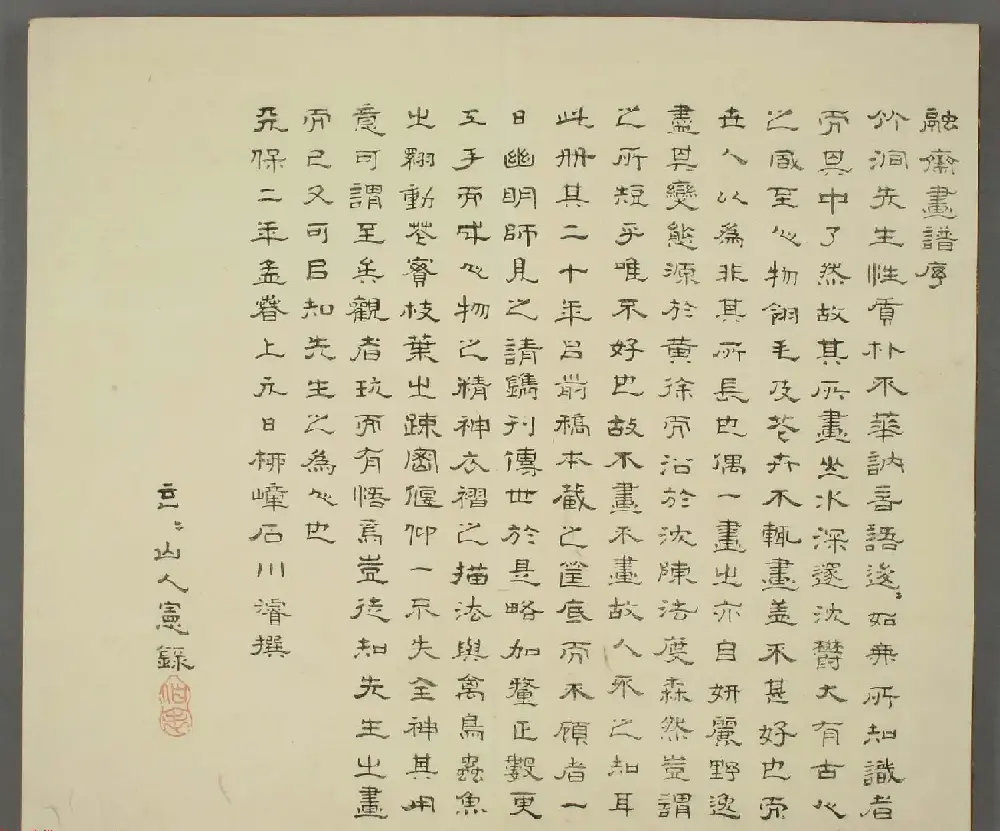 融齋畫譜序
竹洞先生性質朴不華訥言語逡〻如無所知識者
而其中了然故其所畫坐水深邃沈鬱大有古人
之風至人物翎毛及花卉不輒畫盖不甚好也而
世人以為非其所長也偶一畫出亦自妍麗野逸
盡其變態源於黄徐而沿於沈陳法度森然豈謂
之所短乎唯不好也故不畫不畫故人不之知耳
此册其二十年吕前稿本蔵之筐底而不顧者一
日幽明師見之請鐫刊傳世於是略加釐正數更
工手而成人物之精神衣褶之描法與禽鳥蟲魚
出翱動花賽枝葉出疎密偃仰一不失全神其用
意可謂至矣觀者玩而有悟焉豈徒知先生出畫
而已又可吕知先生之為人也
天保二年孟春上元日栁嶂石川濬撰
云〻山人憲録